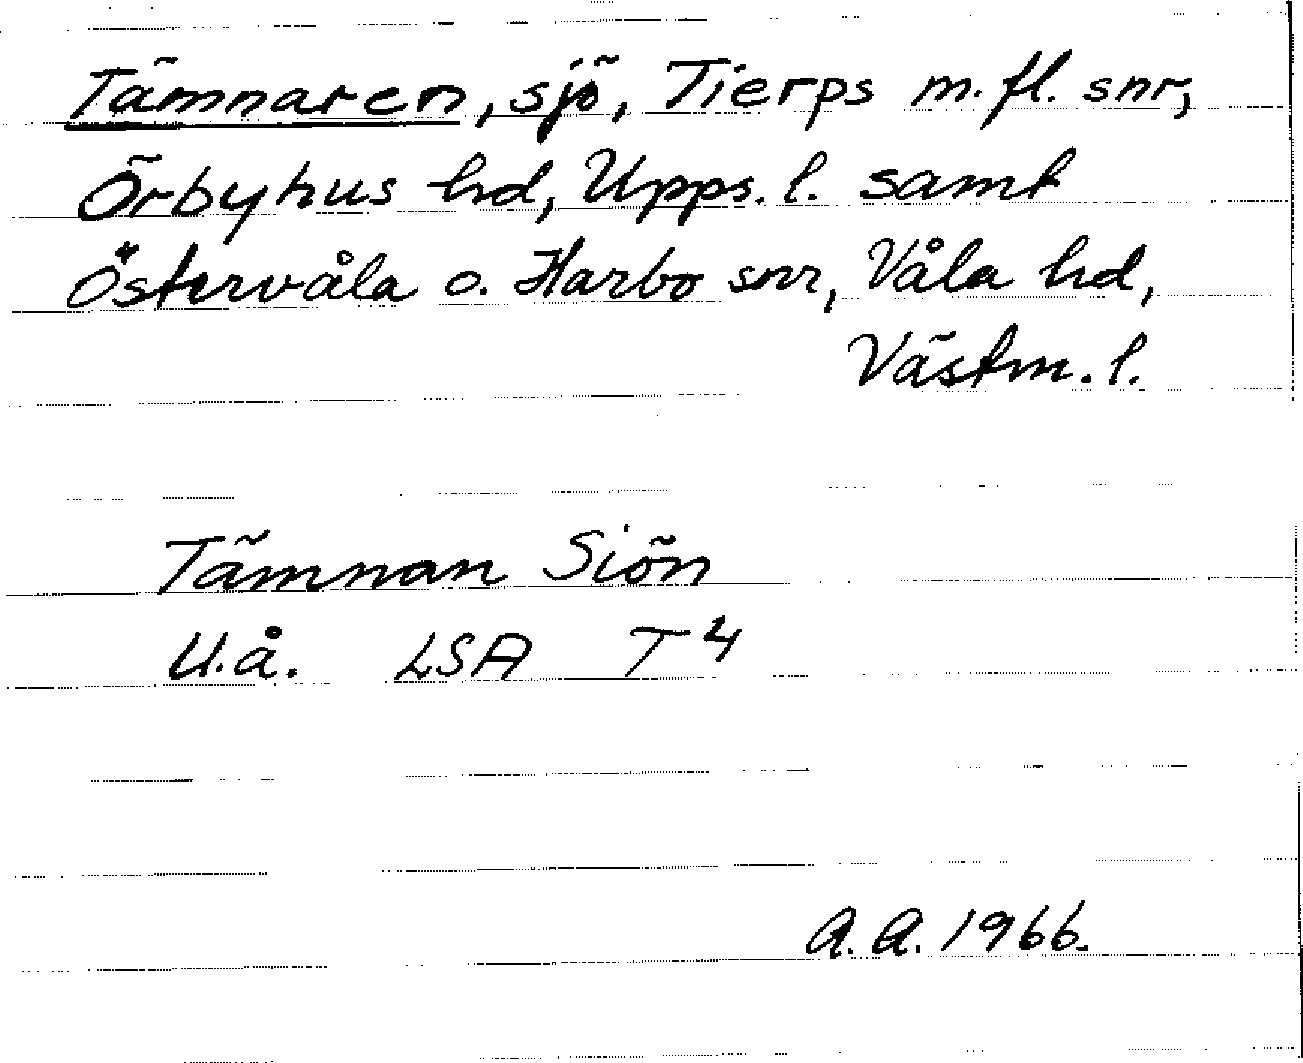 Tämnaren, sjö, Tierps m.fl. snr,
Örbyhus hd, Upps. l. samt
Östervåla o. Harbo snr, Våla hd,
Västm. l.
Tämnan Siön
U.å. LSA T4
A.A. 1966.